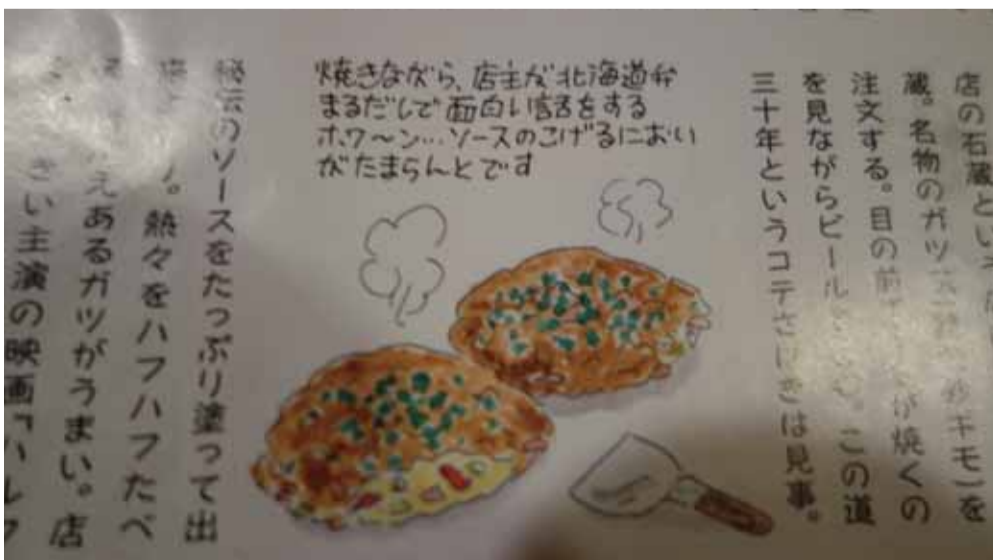 店の石蔵とい
蔵。名物のガツ 砂ギモ)を
注文する。目の前 が焼くの
を見ながらビール 。この道
三十年というコテさばきは見事。
焼きながら、店主が北海道弁
まるだしで面白い話をする
ホワ〜ン…ソースのこげるにおい
がたまらんとです
秘伝のソースをたっぷり塗って出
。熱々をハフハフたべ
えあるガツがうまい。店
さい主演の映画「ハレ